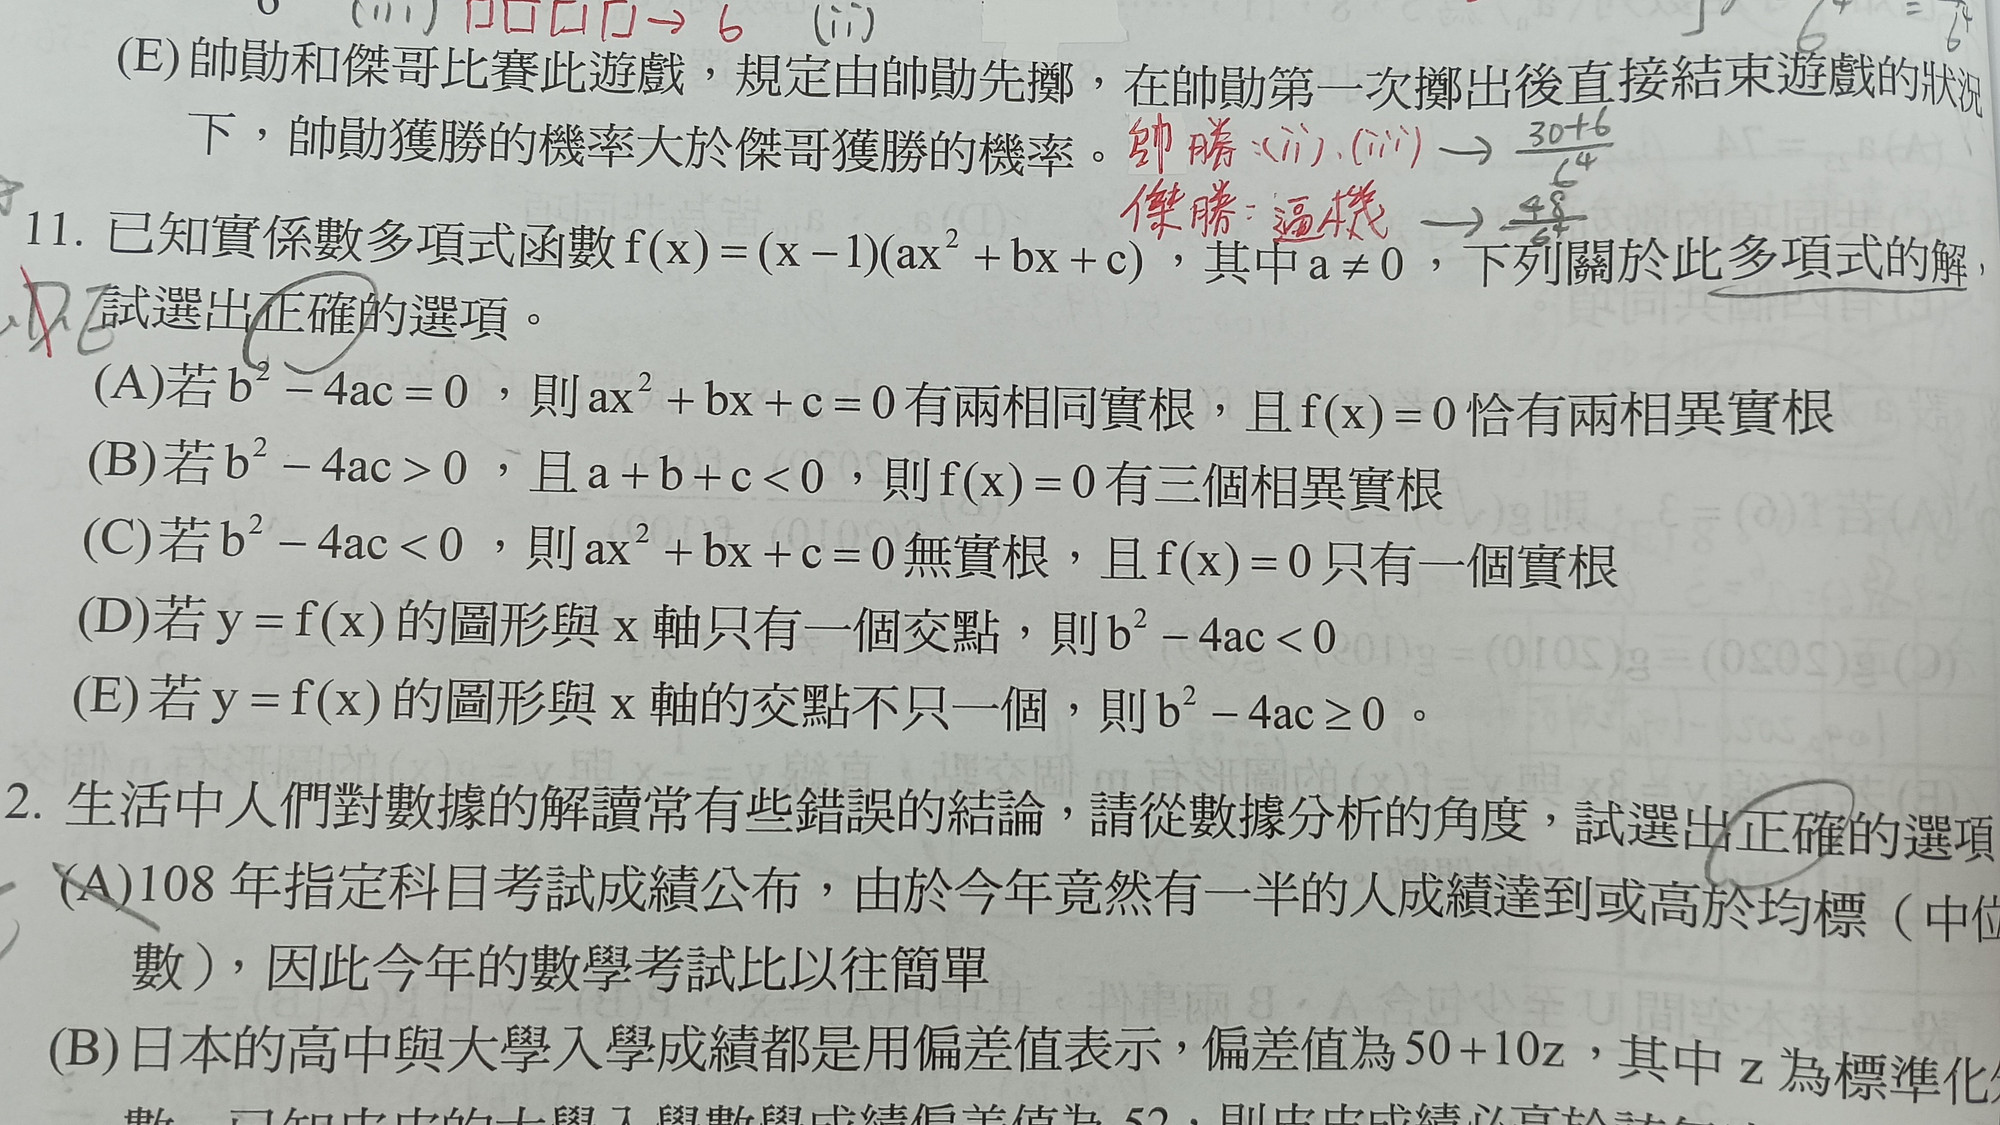 (iii) □□□□→ 6 (ii)
(E)帥勛和傑哥比賽此遊戲，規定由帥勛先擲，在帥勛第一次擲出後直接結束遊戲的狀況
下，帥勛獲勝的機率大於傑哥獲勝的機率。帥勝:(ii).(iii) → 30+6/6⁴
傑勝: 逼機 → 48/6⁴
11. 已知實係數多項式函數f(x)=(x−1)(ax²+bx+c)，其中a≠0，下列關於此多項式的解，
試選出正確的選項。
(A)若b²−4ac=0，則ax²+bx+c=0有兩相同實根，且f(x)=0恰有兩相異實根
(B)若b²−4ac>0，且a+b+c<0，則f(x)=0有三個相異實根
(C)若b²−4ac<0，則ax²+bx+c=0無實根，且f(x)=0只有一個實根
(D)若y=f(x)的圖形與 x 軸只有一個交點，則b²−4ac<0
(E)若y=f(x)的圖形與 x 軸的交點不只一個，則b²−4ac≥0。
2. 生活中人們對數據的解讀常有些錯誤的結論，請從數據分析的角度，試選出正確的選項
(A)108 年指定科目考試成績公布，由於今年竟然有一半的人成績達到或高於均標（中位
數），因此今年的數學考試比以往簡單
(B)日本的高中與大學入學成績都是用偏差值表示，偏差值為50+10z，其中 z 為標準化